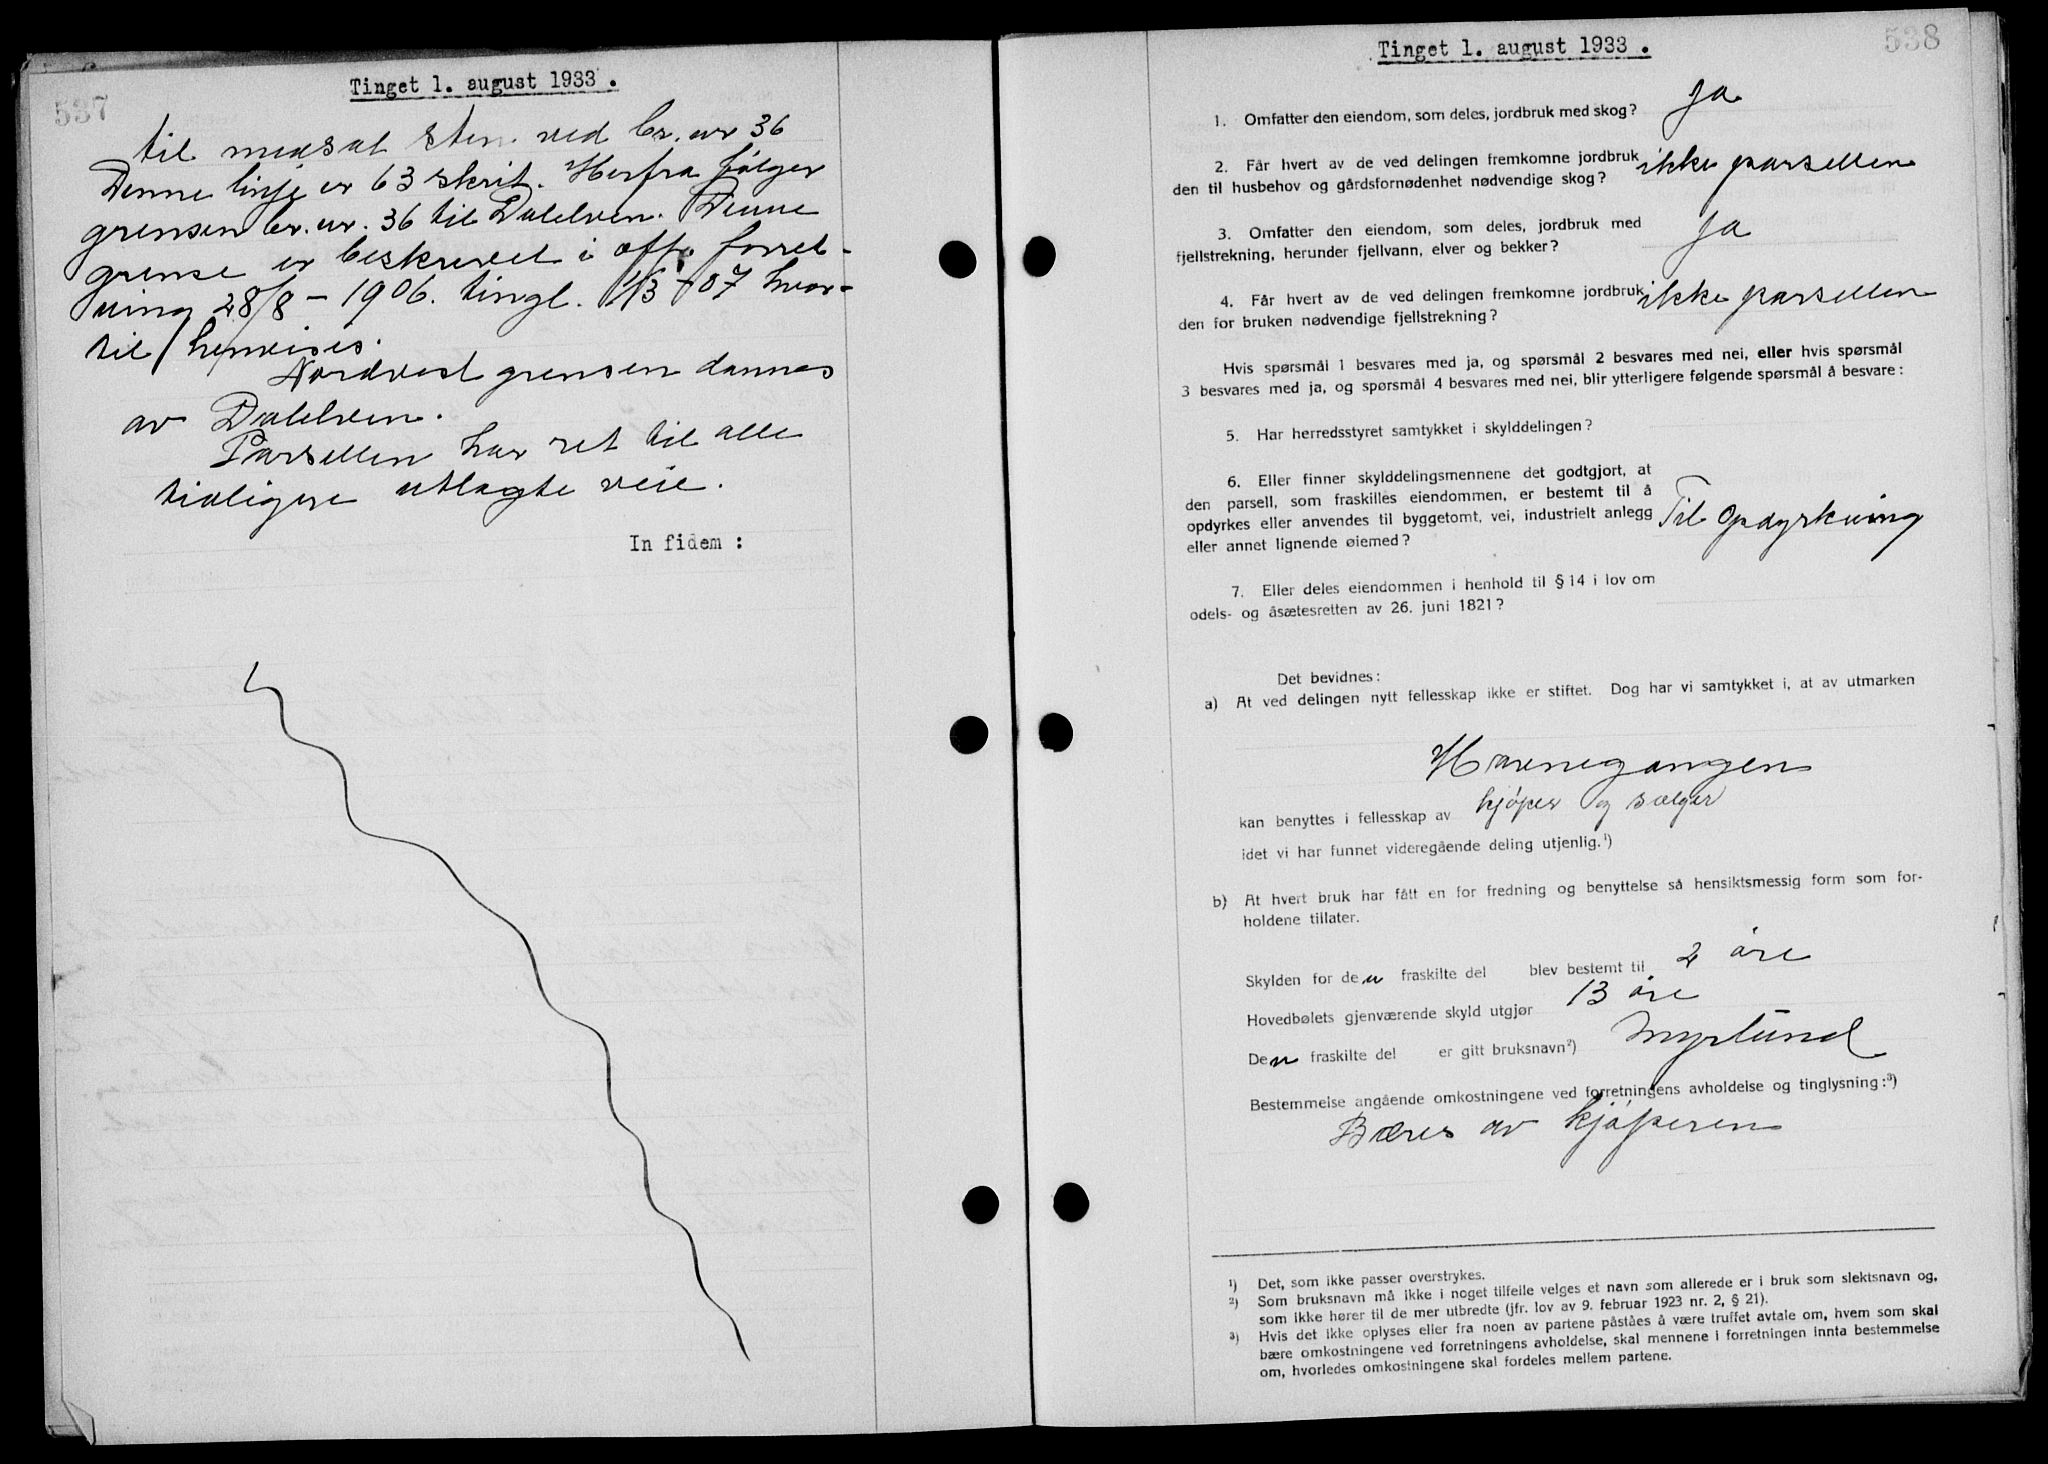 537
Tinget 1. august 1933.
til nedsat sten ved br. nr 36
Denne linje er 63 skrit. Herfra følger
grensen br. nr. 36 til Dalelven. Denne
grense er beskrevet i off. forret-
ning 28/8 - 1906. tingl. 1/3 - 07 hvor-
til henvises.
Nordvest grensen dannes
av Dalelven.
Parsellen har ret til alle
tidligere utlagte veie.
In fidem :
538
Tinget 1. august 1933 .
1. Omfatter den eiendom, som deles, jordbruk med skog? Ja
2. Får hvert av de ved delingen fremkomne jordbruk ikke parsellen
den til husbehov og gårdsfornødenhet nødvendige skog?
3. Omfatter den eiendom, som deles, jordbruk med Ja
fjellstrekning, herunder fjellvann, elver og bekker?
4. Får hvert av de ved delingen fremkomne jordbruk ikke parsellen
den for bruken nødvendige fjellstrekning?
Hvis spørsmål 1 besvares med ja, og spørsmål 2 besvares med nei, eller hvis spørsmål
3 besvares med ja, og spørsmål 4 besvares med nei, blir ytterligere følgende spørsmål å besvare:
5. Har herredsstyret samtykket i skylddelingen?
6. Eller finner skylddelingsmennene det godtgjort, at
den parsell, som fraskilles eiendommen, er bestemt til å
opdyrkes eller anvendes til byggetomt, vei, industrielt anlegg Til opdyrkning
eller annet lignende øiemed?
7. Eller deles eiendommen i henhold til § 14 i lov om
odels- og åsætesretten av 26. juni 1821?
Det bevidnes:
a) At ved delingen nytt fellesskap ikke er stiftet. Dog har vi samtykket i, at av utmarken
Havnegangen
kan benyttes i fellesskap av kjøper og sælger
idet vi har funnet videregående deling utjenlig.¹)
b) At hvert bruk har fått en for fredning og benyttelse så hensiktsmessig form som for-
holdene tillater.
Skylden for den fraskilte del blev bestemt til 2 øre
Hovedbølets gjenværende skyld utgjør 13 øre
Den fraskilte del er gitt bruksnavn²) Myrlund
Bestemmelse angående omkostningene ved forretningens avholdelse og tinglysning:³)
Bæres av kjøperen
¹) Det, som ikke passer overstrykes.
²) Som bruksnavn må ikke i noget tilfelle velges et navn som allerede er i bruk som slektsnavn og,
som ikke hører til de mer utbredte (jfr. lov av 9. februar 1923 nr. 2, § 21).
³) Hvis det ikke oplyses eller fra noen av partene påståes å være truffet avtale om, hvem som skal
bære omkostningene ved forretningens avholdelse, skal mennene i forretningen innta bestemmelse
om, hvorledes omkostningene skal fordeles mellem partene.